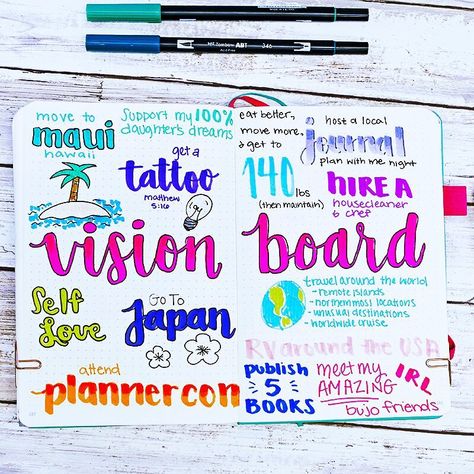 move to
maui
hawaii
Support my 100%
daughter's dreams
get a
tattoo
matthew
5:16
vision
Self
Love
Go To
Japan
attend
planner con
eat better,
move more,
& get to
140 lbs
(then maintain)
host a local
journal
plan with me night
HIRE A
housecleaner
& chef
board
travel around the world
- remote islands
- northernmost locations
- unusual destinations
- worldwide cruise
RV around the USA
publish
5
BOOKS
meet my
AMAZING
IRL
bujo friends
ABT
346